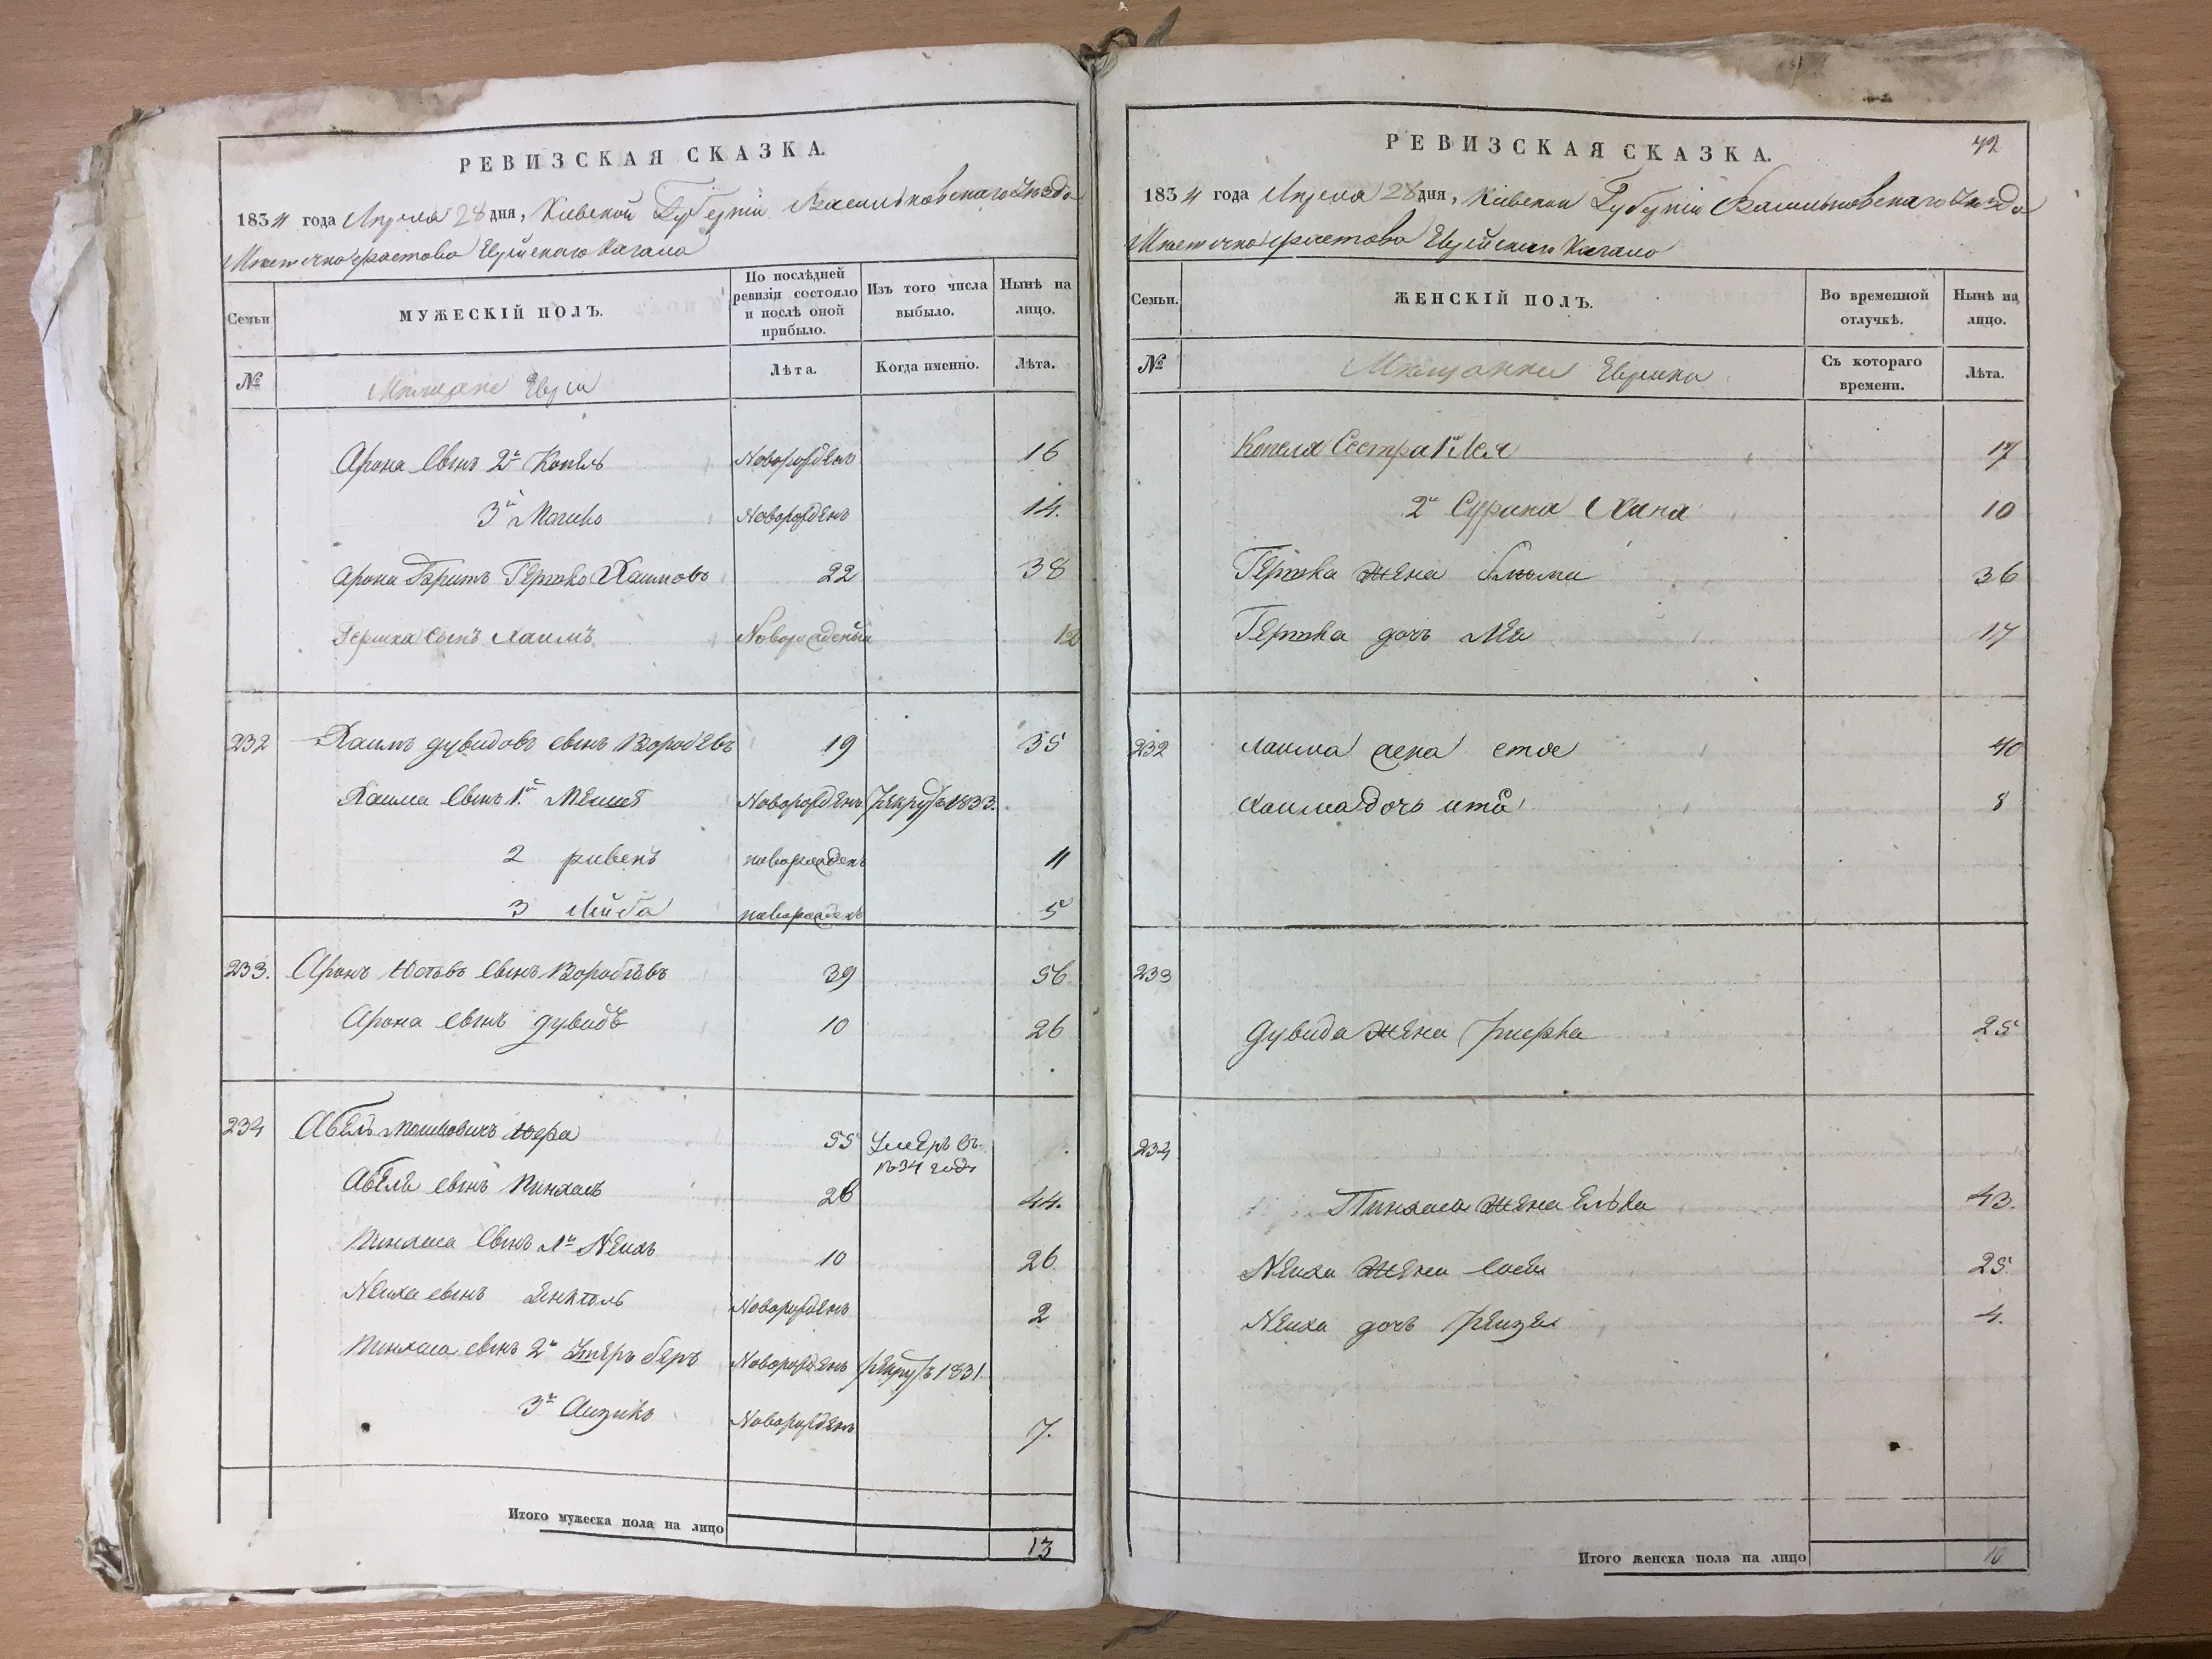 РЕВИЗСКАЯ СКАЗКА.
1834 года Апреля 28 дня, Кіевской Губерніи Васильковскаго Уезда
Местечка Фастова Еврейскаго Кагала
Семьи
МУЖЕСКІЙ ПОЛЪ.
По послѣдней ревизіи состояло и послѣ оной прибыло.
Изъ того числа выбыло.
Нынѣ на лицо.
№
Мещане Евреи
Лѣта.
Когда именно.
Лѣта.
Арона Сынъ 2й Копель Новорожденъ 16
3й Мошко Новорожденъ 14.
Арона Братъ Гершко Хаимовъ 22 38
Гершка Сынъ Хаимъ Новорожденый 12
232 Хаимъ Дувидовъ сынъ Воробѣвъ 19 35
Хаима Сынъ 1й Новорожденъ рекрутъ 1833.
2 рувенъ новорожденъ 11
3 Лейба новорожденъ 5
233. Аронъ сынъ Воробѣвъ 39 56.
Арона сынъ Дувидъ 10 26
234 Абель Мошковичъ 55 Умеръ въ 1834 году
Абеля сынъ Пинхасъ 28 44.
Пинхаса Сынъ 1й 10 26
сынъ Новорожденъ 2
Пинхаса сынъ 2й беръ Новорожденъ рекрутъ 1831.
3й Аизикъ Новорожденъ 7.
Итого мужеска пола на лицо 13
РЕВИЗСКАЯ СКАЗКА.
42
1834 года Апреля 28 дня, Кіевской Губерніи Васильковскаго Уезда
Местечка Фастова Еврейскаго Кагала
Семьи.
ЖЕНСКІЙ ПОЛЪ.
Во временной отлучкѣ.
Нынѣ на лицо.
№
Мещанки Еврейки
Съ котораго времени.
Лѣта.
Копеля Сестра 1я Лея 17
2я Сурина Хана 10
Гершка Жена Блюма 36
Гершка дочь Лея 17
232 Хаима жена 40
Хаима дочь ита 8
233
Дувида Жена 25
234
Пинхаса Жена Елька 43.
Жена 25.
дочь Рейзя 4.
Итого женска пола на лицо 10